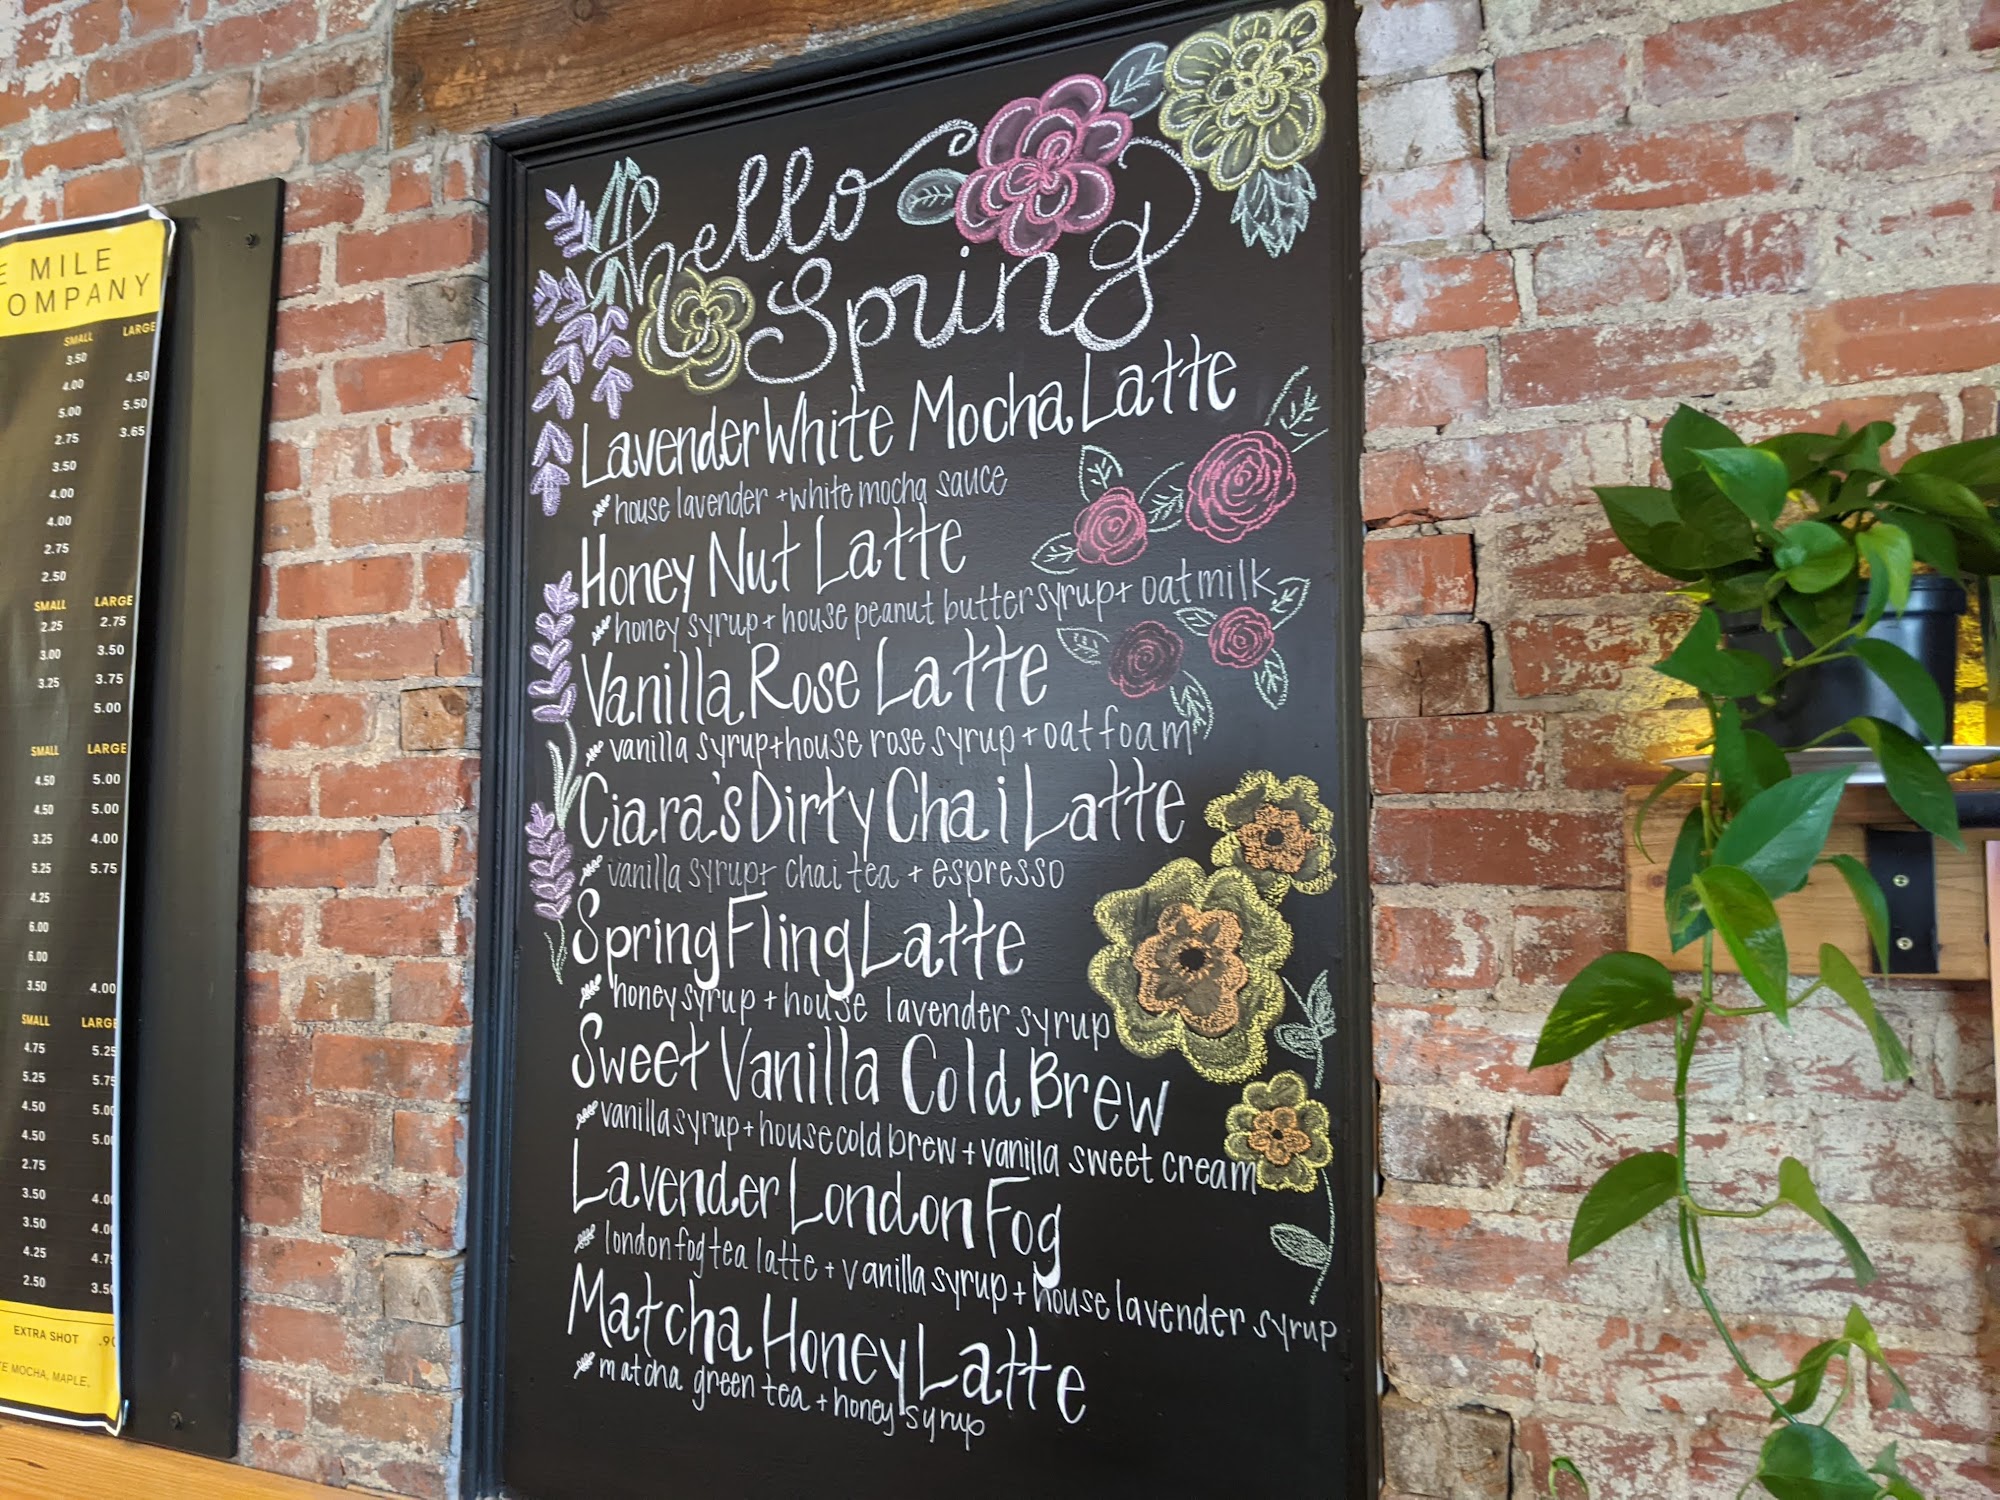 E MILE
OMPANY
SMALL LARGE
3.50
4.00 4.50
5.00 5.50
2.75 3.65
3.50
4.00
4.00
2.75
2.50
SMALL LARGE
2.25 2.75
3.00 3.50
3.25 3.75
5.00
SMALL LARGE
4.50 5.00
4.50 5.00
3.25 4.00
5.25 5.75
4.25
6.00
6.00
3.50 4.00
SMALL LARGE
4.75 5.25
5.25 5.75
4.50 5.00
4.50 5.0
2.75
3.50 4.0
3.50 4.0
4.25 4.75
2.50 3.50
EXTRA SHOT .90
TE MOCHA, MAPLE,
hello
Spring
Lavender White Mocha Latte
house lavender + white mocha sauce
Honey Nut Latte
honey syrup + house peanut butter syrup + oatmilk
Vanilla Rose Latte
vanilla syrup + house rose syrup + oat foam
Ciara's Dirty Chai Latte
vanilla syrup + chai tea + espresso
Spring Fling Latte
honey syrup + house lavender syrup
Sweet Vanilla Cold Brew
vanilla syrup + house cold brew + vanilla sweet cream
Lavender London Fog
london fog tea latte + vanilla syrup + house lavender syrup
Matcha Honey Latte
matcha green tea + honey syrup